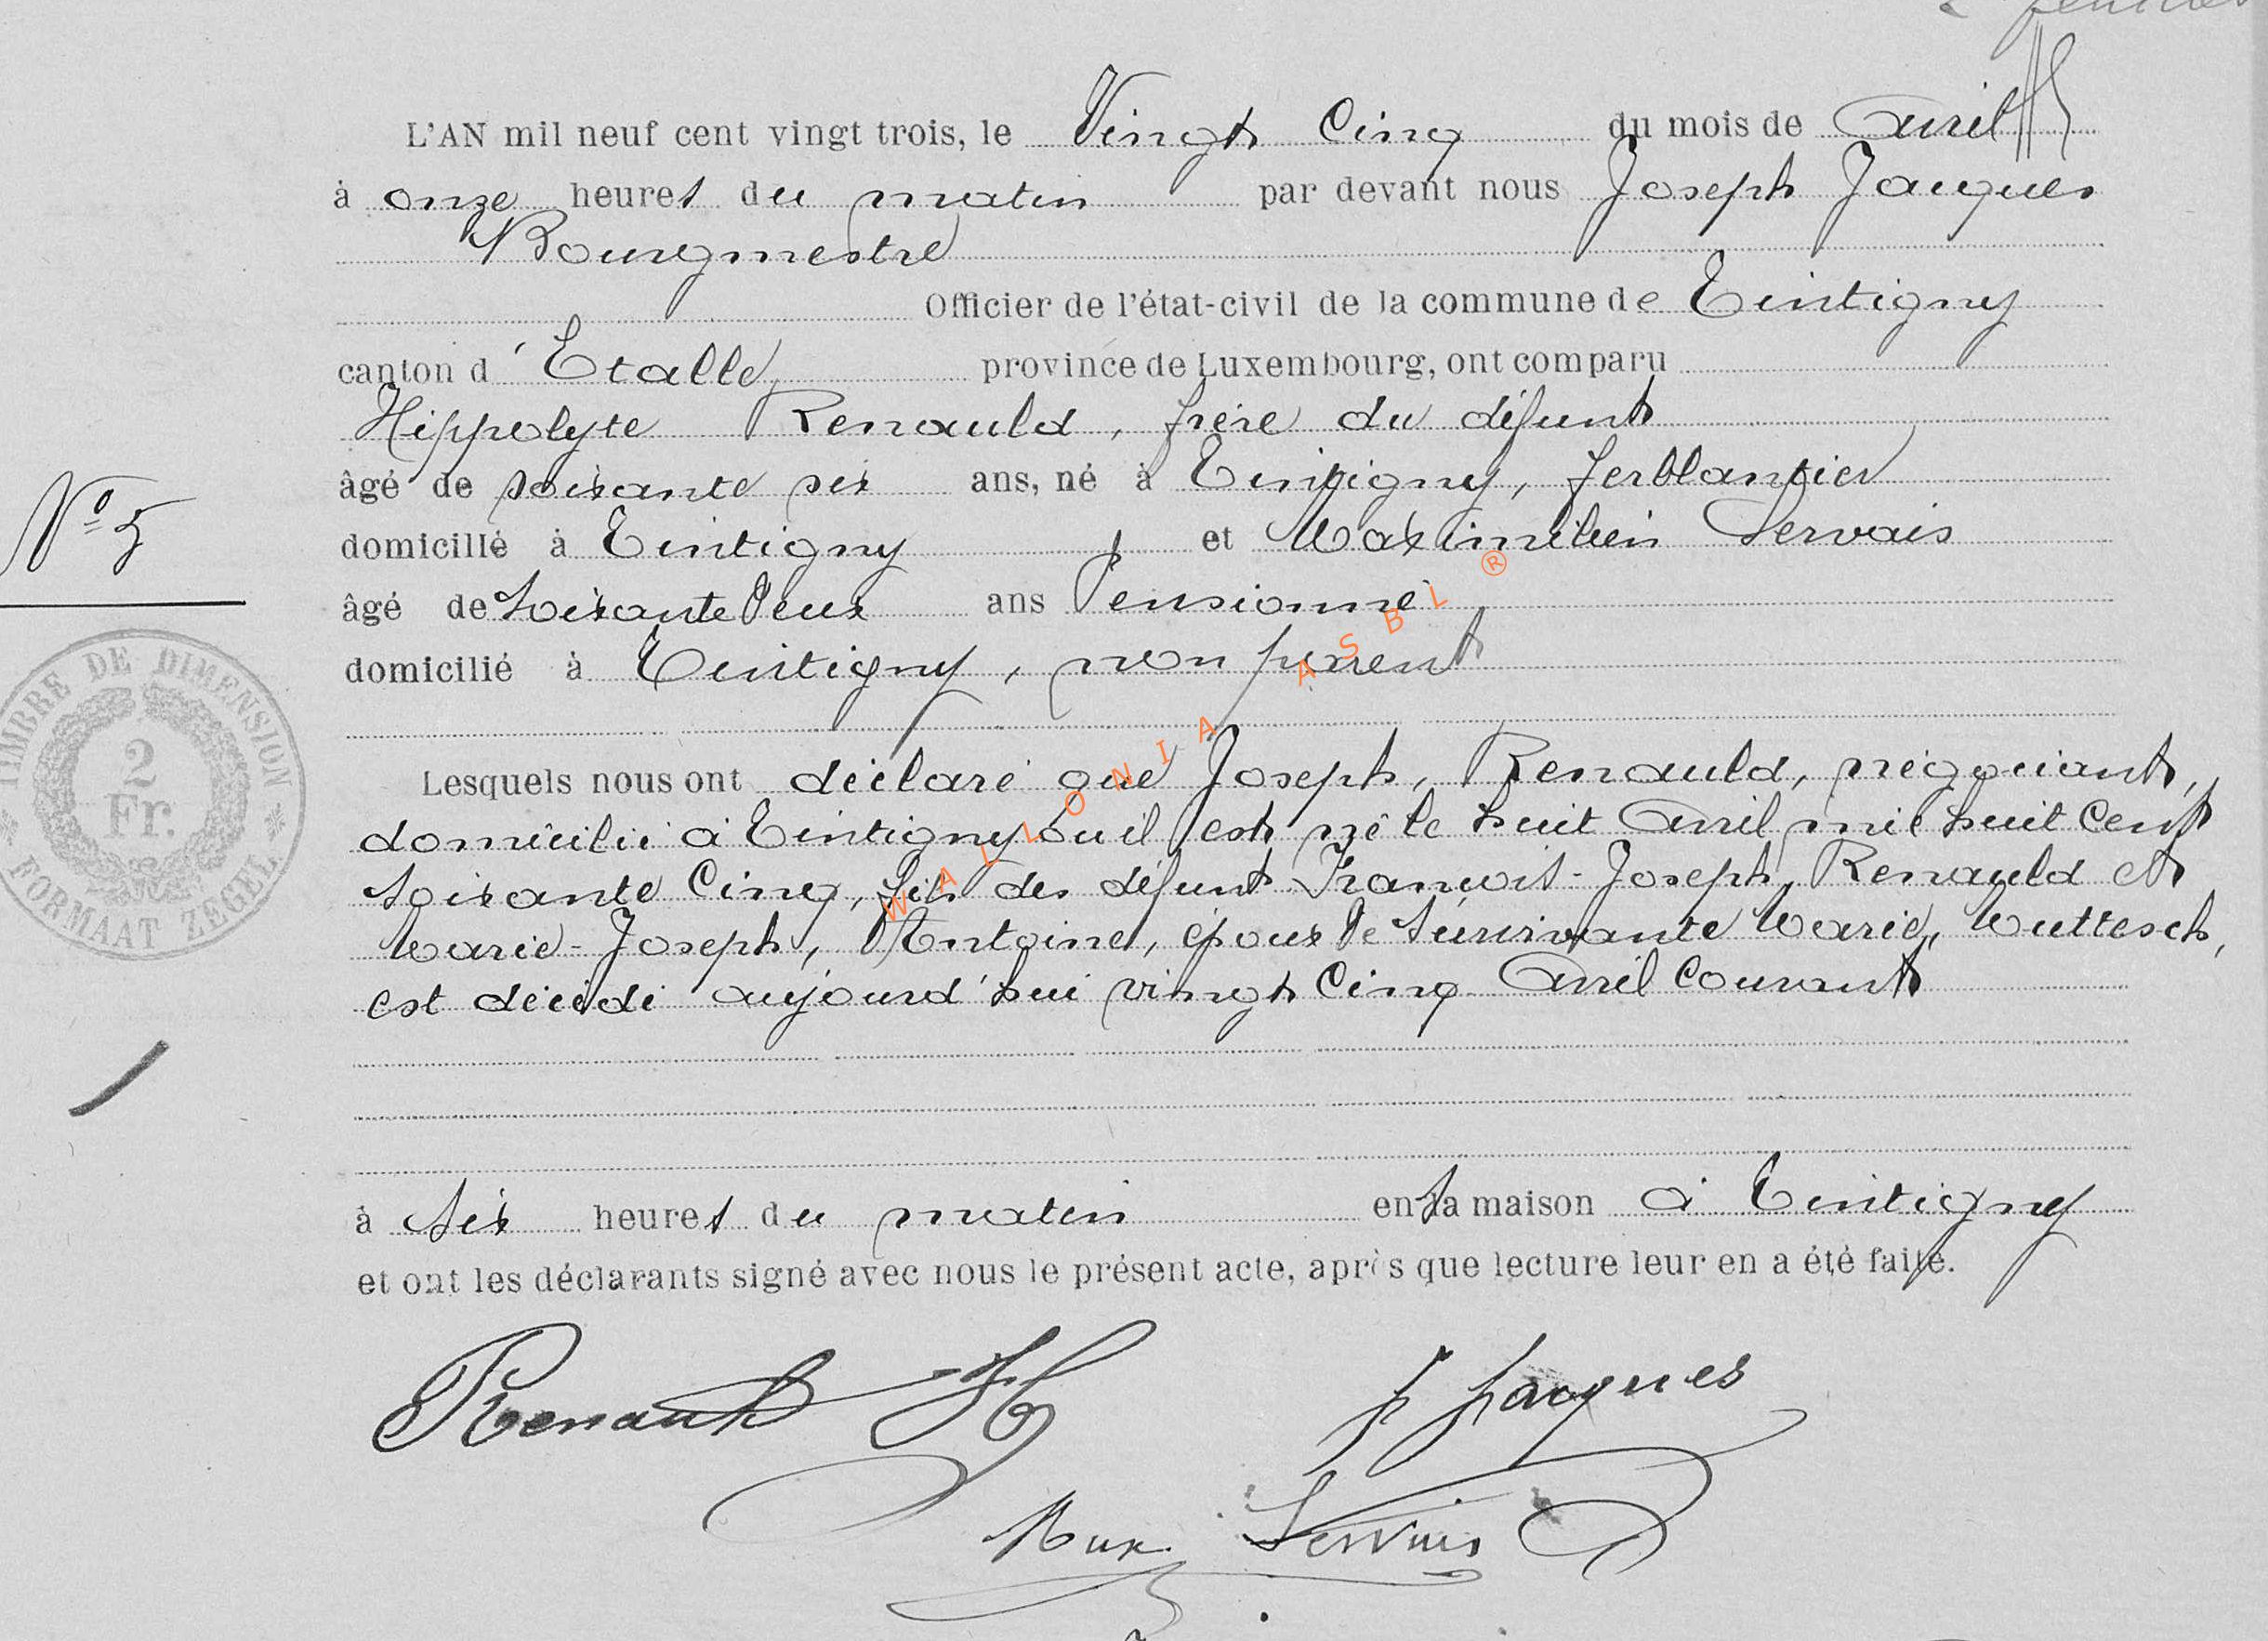 L'AN mil neuf cent vingt trois, le Vingt Cinq du mois de avril
à onze heures du matin par devant nous Joseph Jacques
Bourgmestre
Officier de l'état-civil de la commune de Tintigny
canton d'Etalle province de Luxembourg, ont comparu
Hippolyte Renauld, frère du défunt
âgé de soixante six ans, né à Tintigny, ferblantier
N° 5
domicilié à Tintigny et Maximilien Servais
âgé de soixante Deux ans Pensionné
domicilié à Tintigny, non parent
TIMBRE DE DIMENSION
2
Fr.
FORMAAT ZEGEL
Lesquels nous ont déclaré que Joseph, Renauld, négociant,
domicilié à Tintigny ou il est né le huit avril mil huit cent
soixante Cinq, fils des défunt François-Joseph, Renauld et
Marie-Joseph, Antoine, époux De survivante Marie, Muttesch,
est décédé aujourd'hui vingt Cinq avril Courant
à six heures du matin en sa maison à Tintigny
et ont les déclarants signé avec nous le présent acte, après que lecture leur en a été faite.
Renauld H
J Jacques
Max Servais
WALLONIA ASBL ®